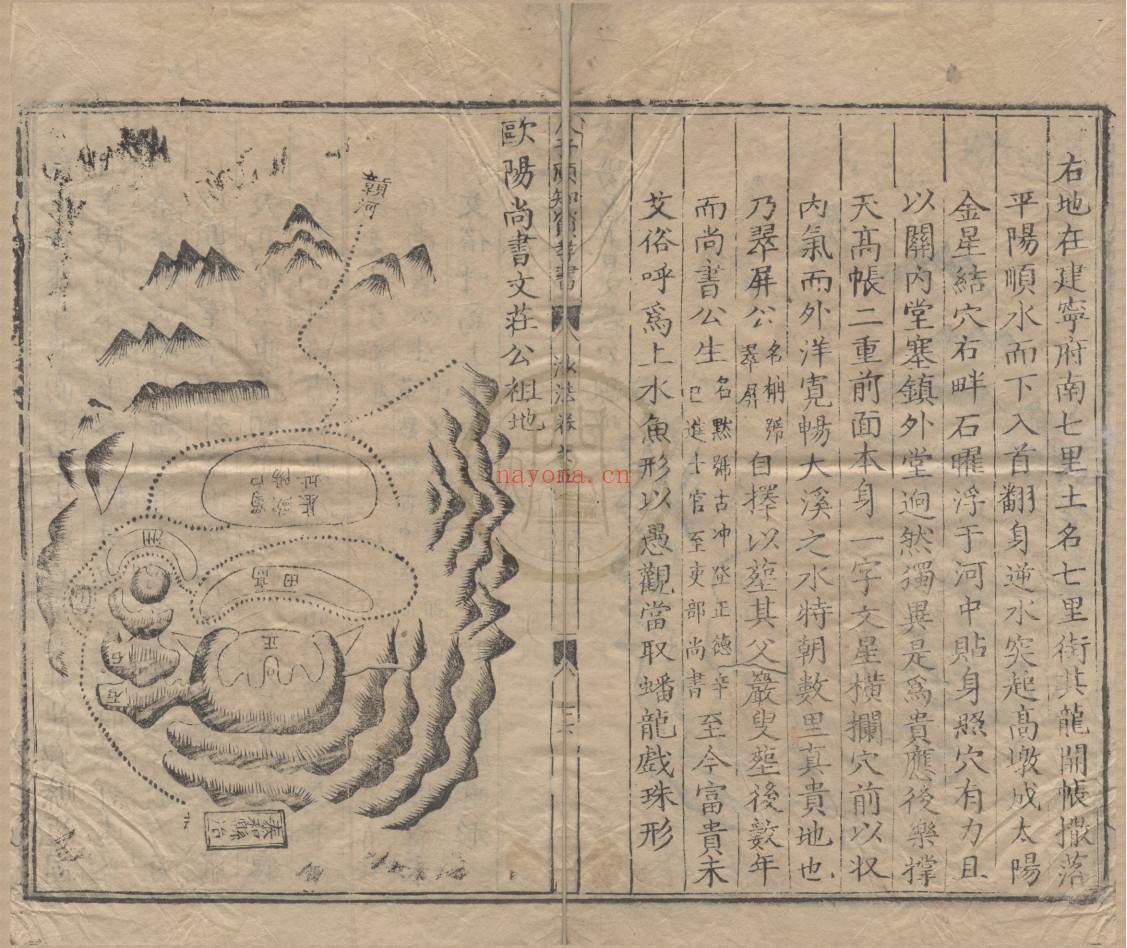 右地在建寧府南七里土名七里街其龍開帳撒落
平陽順水而下入首翻身逆水突起高墩成太陽
金星結穴右畔石曜浮于河中貼身照穴有力且
以關內堂塞鎮外堂逈然獨異是爲貴應後樂撑
天高帳二重前面本身一字文星橫攔穴前以収
內氣而外洋寬暢大溪之水特朝數里真貴地也
乃翠屏公名榾號翠屏自擇以塟其父嚴叟塟後數年
而尚書公生名黙號古冲登正德辛巳進士官至吏部尚書至今富貴未
艾俗呼爲上水魚形以愚觀當取蟠龍戲珠形
人子須知資孝書
歐陽尚書文莊公祖地
贛河
蜀口
歐陽
基地
田
高田
正
石
石
泰和縣治
nayona.cn